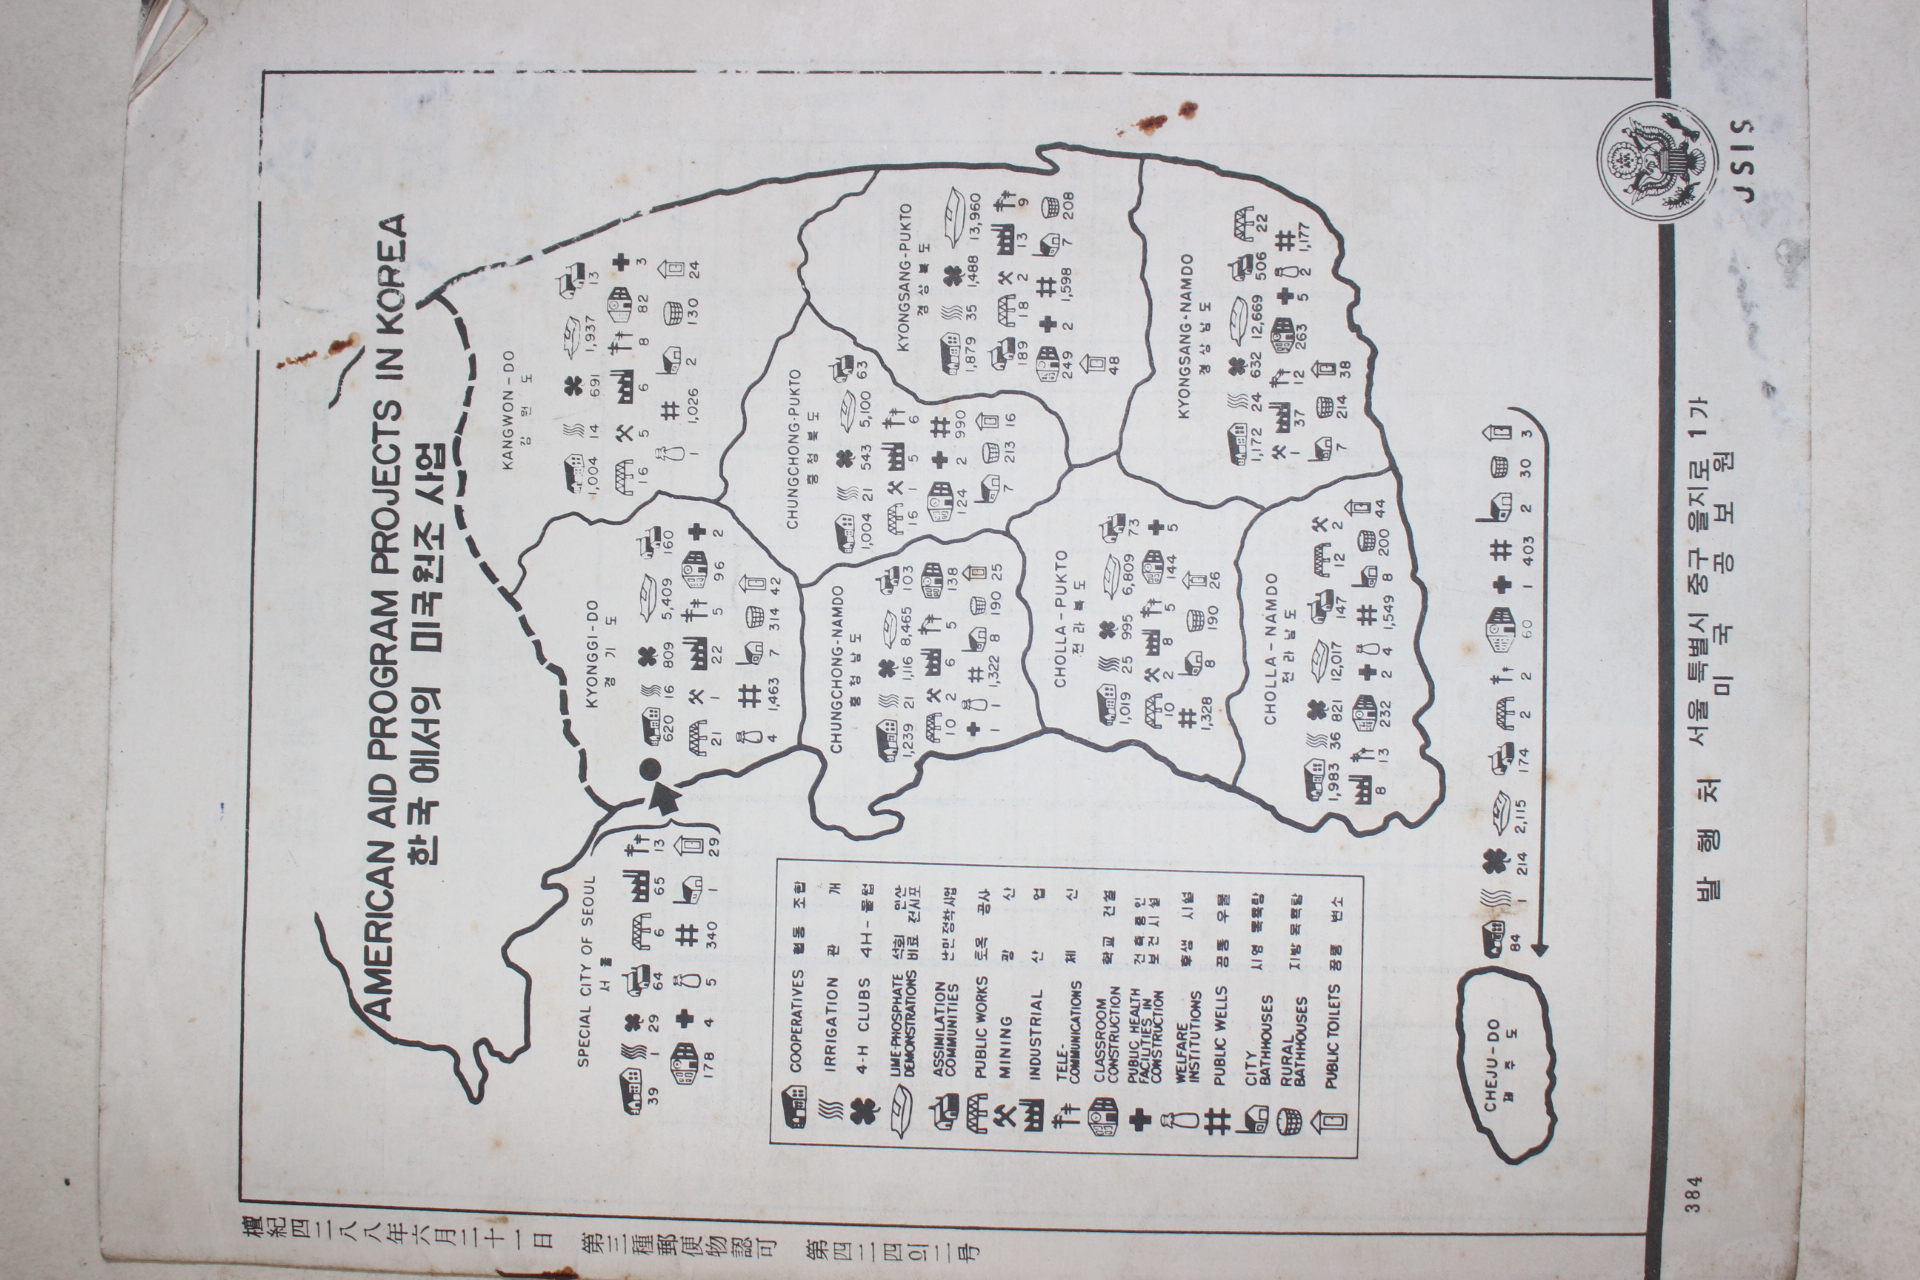 AMERICAN AID PROGRAM PROJECTS IN KOREA
한국에서의 미국원조 사업
KANGWON-DO
강원도
1,004 14 691 1,937 13
16 5 6 8 82 3
1 1,026 2 130 24
KYONGGI-DO
경기도
620 16 809 5,409 160
21 1 22 5 96 2
4 1,463 7 314 42
SPECIAL CITY OF SEOUL
서울
39 1 29 64 6 65 13
178 4 5 340 1 29
CHUNGCHONG-PUKTO
충청북도
1,004 21 543 5,100 63
16 1 5 6
124 2 990
7 213 16
KYONGSANG-PUKTO
경상북도
1,879 35 1,488 13,960
189 18 2 13 9
249 2 1,598 7 208
48
CHUNGCHONG-NAMDO
충청남도
1,239 21 1,116 8,465 103
10 2 6 5 138
1 1 1,322 8 190 25
CHOLLA-PUKTO
전라북도
1,019 25 995 6,809 73
10 2 8 5 144 5
1,328 8 190 26
KYONGSANG-NAMDO
경상남도
1,172 24 632 12,669 506 22
1 37 12 263 5 2 1,177
7 214 38
CHOLLA-NAMDO
전라남도
1,983 36 821 12,017 147 12 2
8 13 232 2 4 1,549 8 200 44
CHEJU-DO
제주도
84 1 214 2,115 174 2 2 60 1 403 2 30 3
COOPERATIVES 협동 조합
IRRIGATION 관개
4-H CLUBS 4H-클럽
LIME-PHOSPHATE DEMONSTRATIONS 석회 인산 비료 전시포
ASSIMILATION COMMUNITIES 난민정착사업
PUBLIC WORKS 토목 공사
MINING 광산
INDUSTRIAL 산업
TELE-COMMUNICATIONS 체신
CLASSROOM CONSTRUCTION 학교 건설
PUBLIC HEALTH FACILITIES IN CONSTRUCTION 건축중인 보건시설
WELFARE INSTITUTIONS 후생 시설
PUBLIC WELLS 공동 우물
CITY BATHHOUSES 시영 목욕탕
RURAL BATHHOUSES 지방 목욕탕
PUBLIC TOILETS 공동 변소
384
발행처 서울 특별시 중구 을지로 1가
미국 공보원
USIS
檀紀四二八八年六月二十一日 第三種郵便物認可 第四二四의二号